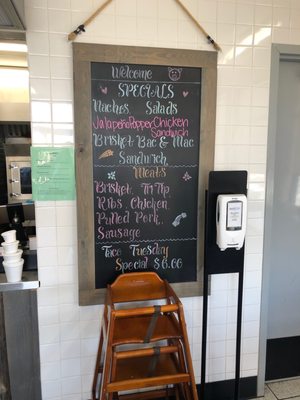 Welcome
SPECIALS
Nachos Salads
Jalapeño Popper Chicken
Sandwich
Brisket Bac & Mac
Sandwich
Meats
Brisket Tri Tip
Ribs Chicken
Pulled Pork
Sausage
Taco Tuesday
Special $6.00